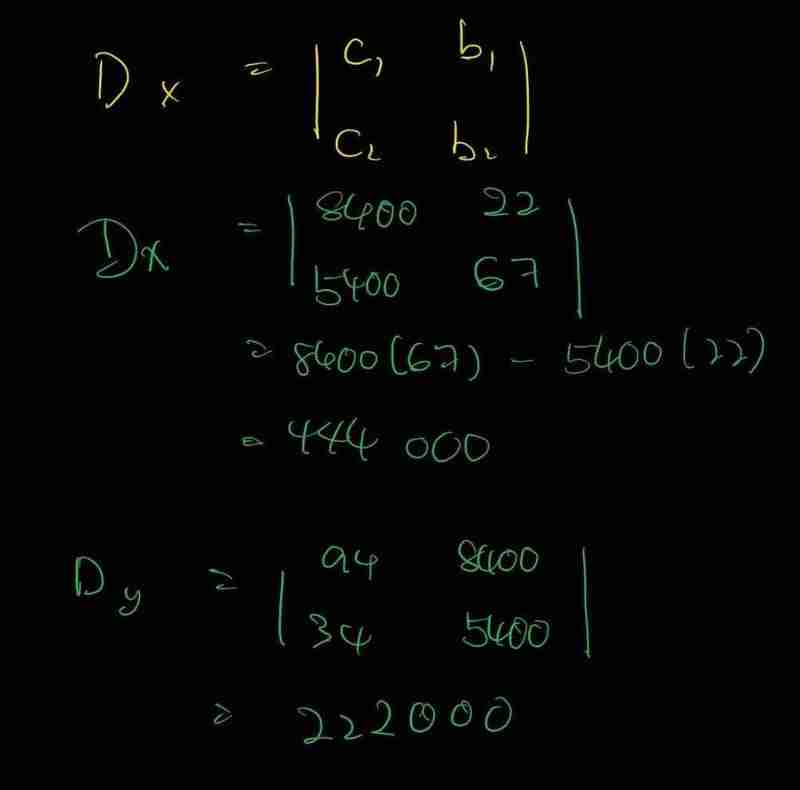 Dx = | c₁ b₁ |
| c₂ b₂ |
Dx = | 8400 22 |
| 5400 67 |
= 8400(67) - 5400(22)
= 444 000
Dy = | 94 8400 |
| 34 5400 |
= 222000